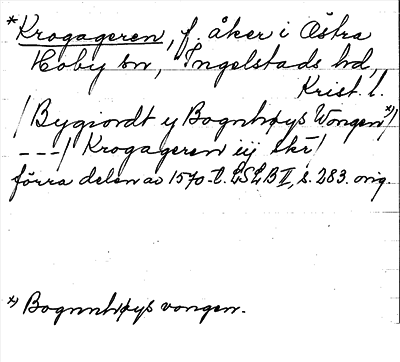 *Krogageren, f. åker i Östra
Hoby sn, Ingelstads hd,
Krist. l.
/Bygiordt y Bognhøys Wongen*)/
---/ Krogageren iij skr/
förra delen av 1570-t. LSLB II, s. 283. orig.
*) Bognnhøys vongen.